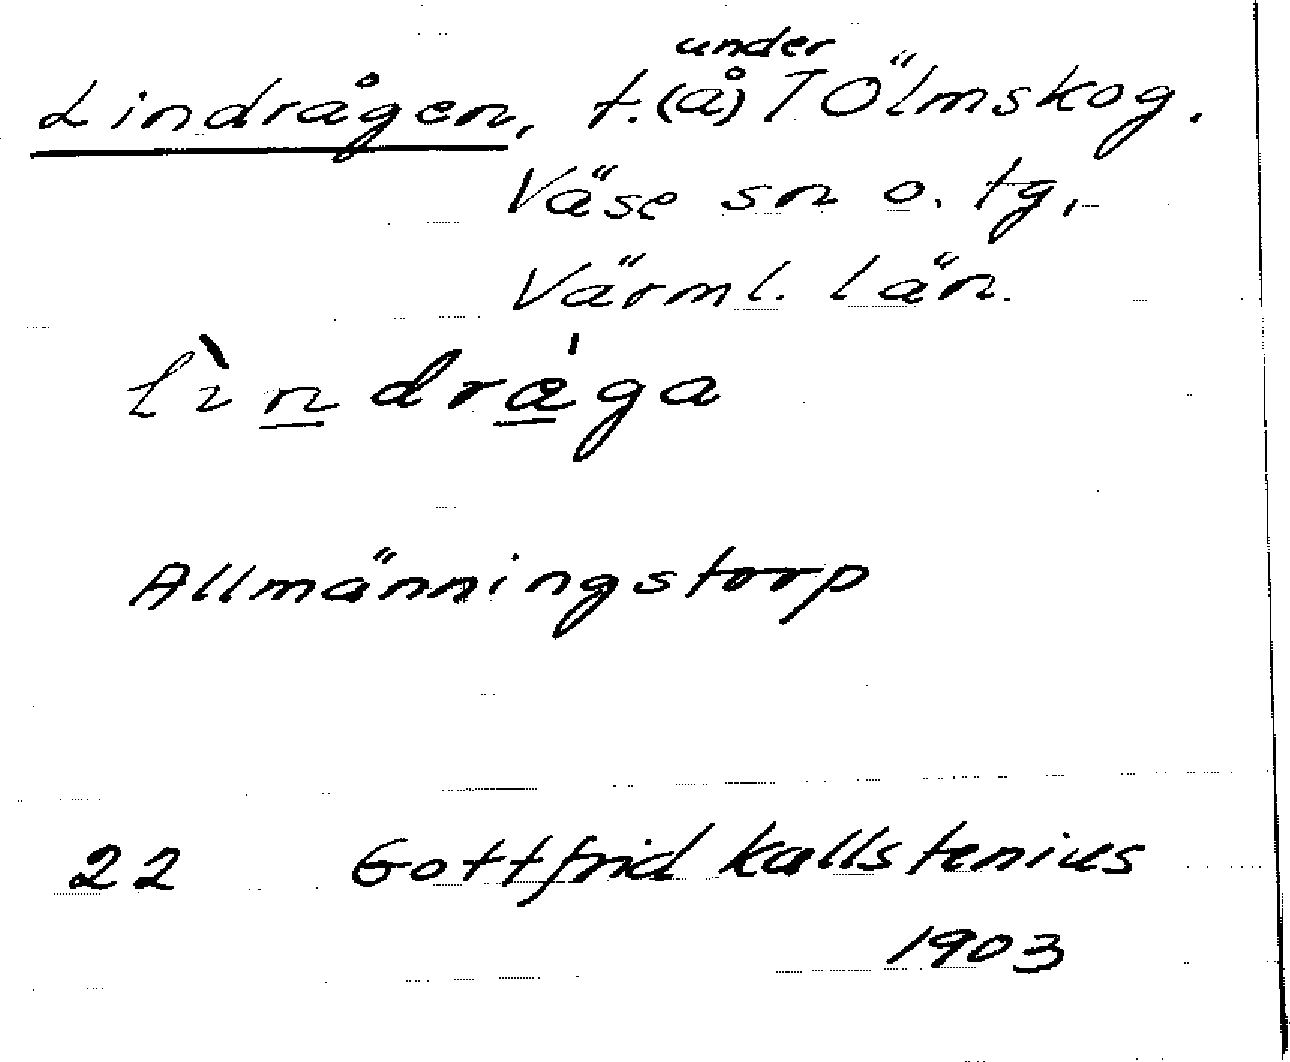 Lindrågen, t.(å) / under Ölmskog.
Väse sn o. tg,
Värml. län.
lìndrága
Allmänningstorp
22 Gottfrid Kallstenius
1903